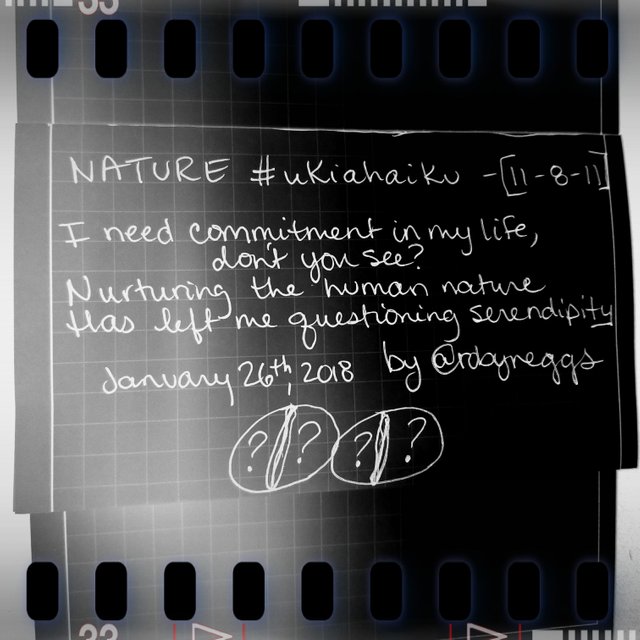 33
NATURE #ukiahaiku -[11-8-11]
I need commitment in my life,
don't you see?
Nurturing the human nature
Has left me questioning serendipity
by @robyneggs
January 26th, 2018
? ? ? ?
33